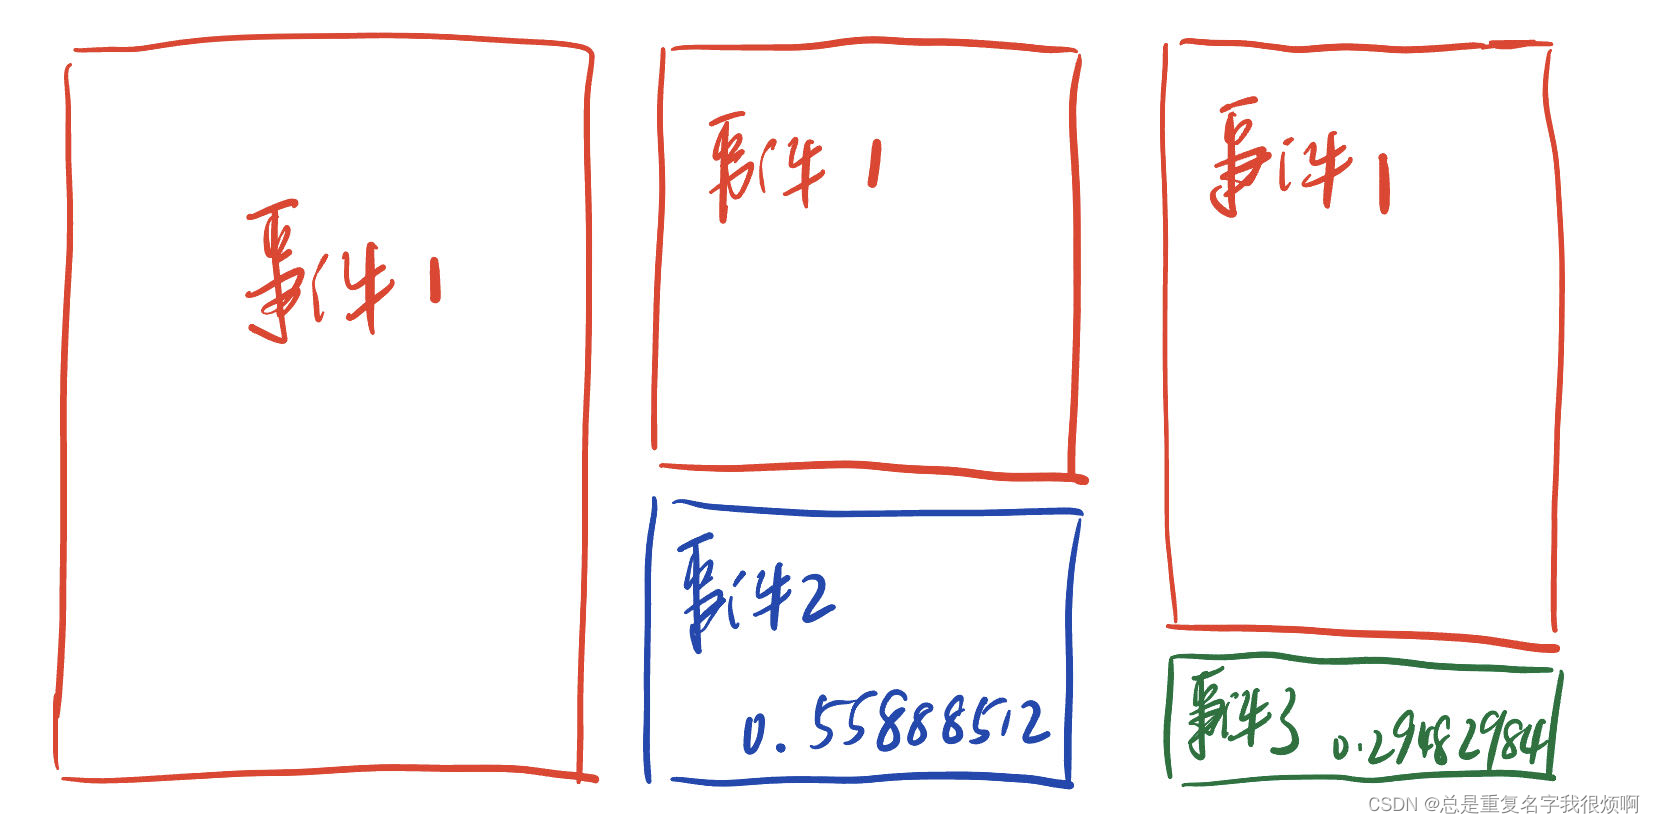 事件1
事件1
事件2
0.55888512
事件1
事件3 0.29482984
CSDN @总是重复名字我很烦啊